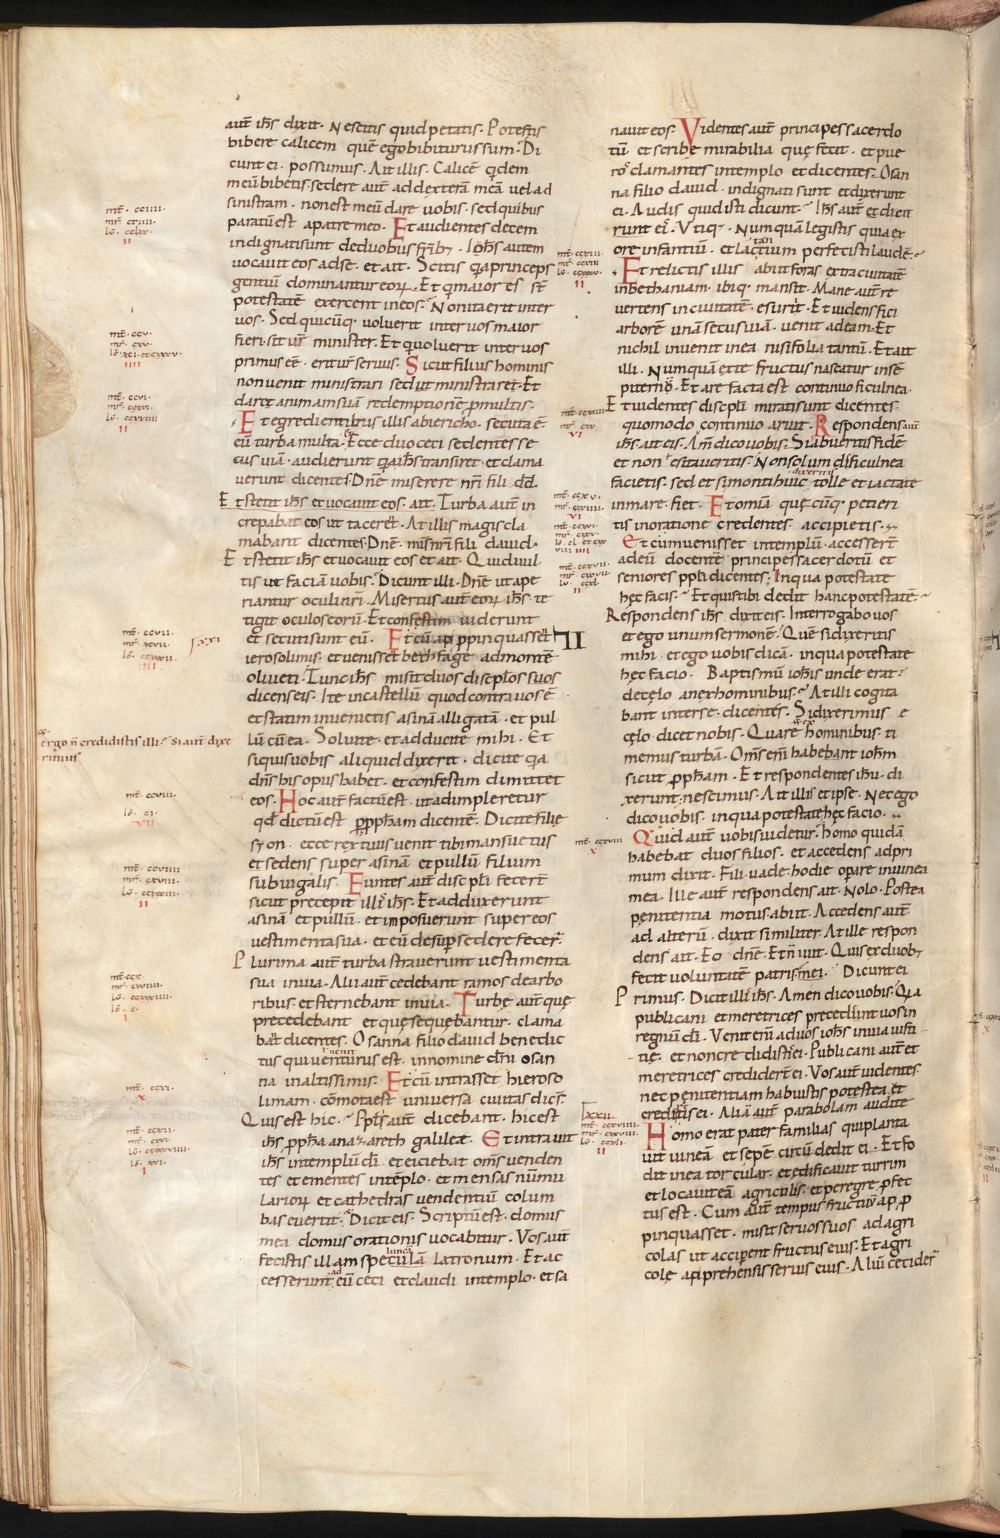 aut̄ ih̄s dixit. Nescitis quid petatis. Potestis
bibere calicem quē ego bibiturus sum? Di
cunt ei. possumus. Ait illis. Calicē q̇dem
meū bibetis. sedere aut̄ ad dexterā meā vel ad
sinistram. non est meū dare uobis. sed quibus
paratū est a patre meo. Et audientes decem
indignati sunt de duobus fr̄ib;. Ih̄s autem
uocauit eos ad se. et ait. Scitis q̄a princeps
gentiū dominantur eoꝝ. Et q̇ maiores st̄
potestatē exercent in eos. Non ita erit inter
uos. Sed quicūq; voluerit inter uos maior
fieri. sit ur̄ minister. Et q̇ uoluerit inter uos
primus eē. erit ur̄ seruus. Sicut filius hominis
non uenit ministrari sed ut ministraret. Et
daret animam suā redemptionē ꝓ multis.
Et egredientibus illis ab iericho. secuta ē
eū turba multa. Et ecce duo ceci sedentes se
cus uiā. audierunt q̄a ih̄s transiret. et clama
uerunt dicentes. Dnē miserere nr̄i fili dd̄.
Et stetit ih̄s et uocauit eos. ait. Turba aut̄ in
crepabat eos ut tacerēt. At illi magis cla
mabant dicentes. Dnē. mis̄ nr̄i fili dauid.
Et stetit ih̄s et uocauit eos et ait. Quid uul
tis ut faciā uobis? Dicunt illi. Dnē ut ape
riantur oculi nr̄i. Misertus aut̄ eoꝝ ih̄s. te
tigit oculos eorū. Et confestim uiderunt
et secuti sunt eū. Et cū appropinquassēt
ierosolimis. et uenissēt bethfage ad montē
oliueti. Tunc ih̄s misit duos discp̄los suos
dicens eis. Ite in castellū quod contra uos ē
et statim inuenietis asinā alligatā. et pul
lū cū ea. Soluite. et adducite mihi. Et
si quis uobis aliquid dixerit. dicite q̄a
dn̄s his opus habet. et confestim dimittet
eos. Hoc aut̄ factū est. ut adimpleretur
qd̄ dictū est ꝑ ꝓph̄am dicentē. Dicite filie
syon. ecce rex tuus uenit tibi mansuetus
et sedens super asinā et pullū filium
subiugalis. Euntes aut̄ discp̄li fecert̄
sicut precepit illis ih̄s. Et adduxerunt
asinā et pullū. et imposuerunt super eos
uestimenta sua. et eū desup̄ sedere fecer̄.
Plurima aut̄ turba strauerunt uestimenta
sua in uia. Alii aut̄ cedebant ramos de arbo
ribus. et sternebant in uia. Turbę aut̄ quę
precedebant et quę sequebantur. clama
bāt dicentes. Osanna filio dauid benedic
tus qui uenturus est in nomine dn̄i osan
na in altissimis. Et cū intrasset hieroso
limam. cōmota est uniuersa ciuitas dic̄s.
Quis est hic? Ppl̄s aut̄ dicebant. hic est
ih̄s ꝓph̄a a nazareth galileę. Et intrauit
ih̄s in templū dī. et eiciebat om̄s uenden
tes et ementes in tēplo. et mensas nūmu
larioꝝ et cathedras uendentiū colum
bas euertit. Et dicit eis. Scriptū est. domus
mea domus orationis uocabitur. Vos aut̄
fecistis illam speluncā latronum. Et ac
cesserunt ad eū ceci et claudi in templo. et sa
nauit eos. Videntes aut̄ principes sacerdo
tū et scribe mirabilia quę fecit. et pue
ros clamantes in templo et dicentes. Osan
na filio dauid. indignati sunt et dixerunt
ei. Audis quid isti dicunt? Ih̄s aut̄ dicit
eis. Utiq;. Numquā legistis quia ex
ore infantiū. et lactantium perfecisti laudē?
Et relictis illis abiit foras extra ciuitatē
in bethaniam. ibiq; mansit. Mane aut̄ re
uertens in ciuitatē. esuriit. Et uidens fici
arborē unā secus uiā. uenit ad eam. Et
nichil inuenit in ea nisi folia tantū. Et ait
illi. Numquā ex te fructus nascatur in sem
piternū. Et arefacta est continuo ficulnea.
Et uidentes discpl̄i mirati sunt dicentes.
quomodo continuo aruit. Respondens aut̄
ih̄s ait eis. Am̄ dico uobis. Si habueritis fidē
et non hesitaueritis. Non solum de ficulnea
facietis. sed et si monti huic dixeritis tolle et iactate
in mare. fiet. Et omnia quęcūq; petieri
tis in oratione credentes accipietis.
Et cū uenisset in templū. accessert̄
ad eū docentē principes sacerdotū et
seniores ppl̄i dicentes. In qua potestate
hęc facis? Et quis tibi dedit hanc potestatē?
Respondens ih̄s dixit eis. Interrogabo uos
et ego unum sermonē. Quē si dixeritis
mihi. et ego uobis dicā. in qua potestate
hęc facio. Baptismū ioh̄is unde erat?
de cęlo an ex hominibus? At illi cogita
bant inter se. dicentes. Si dixerimus e
cęlo dicet nobis. Quare
ergo n̄ credidistis illi? Si aut̄ dixe
rimus
ex hominibus. ti
memus turbā. Om̄s enī habebant ioh̄m
sicut ꝓph̄am. Et respondentes ih̄u. di
xerunt. nescimus. Ait illis et ipse. Nec ego
dico uobis. in qua potestate hęc facio.
Quid aut̄ uobis uidetur? homo quidā
habebat duos filios. et accedens ad pri
mum dixit. Fili uade hodie operare in uinea
mea. Ille aut̄ respondens ait. Nolo. Postea
penitentia motus. abiit. Accedens aut̄
ad alterū. dixit similiter. At ille respon
dens ait. Eo dnē. Et n̄ iuit. Quis ex duob;
fecit uoluntatē patris mei? Dicunt ei
Primus. Dicit illis ih̄s. Amen dico uobis. Q̄a
publicani et meretrices precedūt uos in
regnū dī. Venit enī ad uos ioh̄s in uia iusti
tię. et non credidistis ei. Publicani aut̄ et
meretrices credidert̄ ei. Vos aut̄ uidentes
nec penitentiam habuistis postea. ut
crederetis ei. Aliā aut̄ parabolam audite
Homo erat pater familias qui planta
uit uineā et sepē circū dedit ei. Et fo
dit in ea torcular. et ędificauit turrim
et locauit eā agricolis. et peregre ꝓfec
tus est. Cum aut̄ tempus fructuū app̄ro
pinquasset. misit seruos suos ad agri
colas ut acciperent fructus eius. Et agri
colę apprehensis seruis eius. Aliū cecidert̄